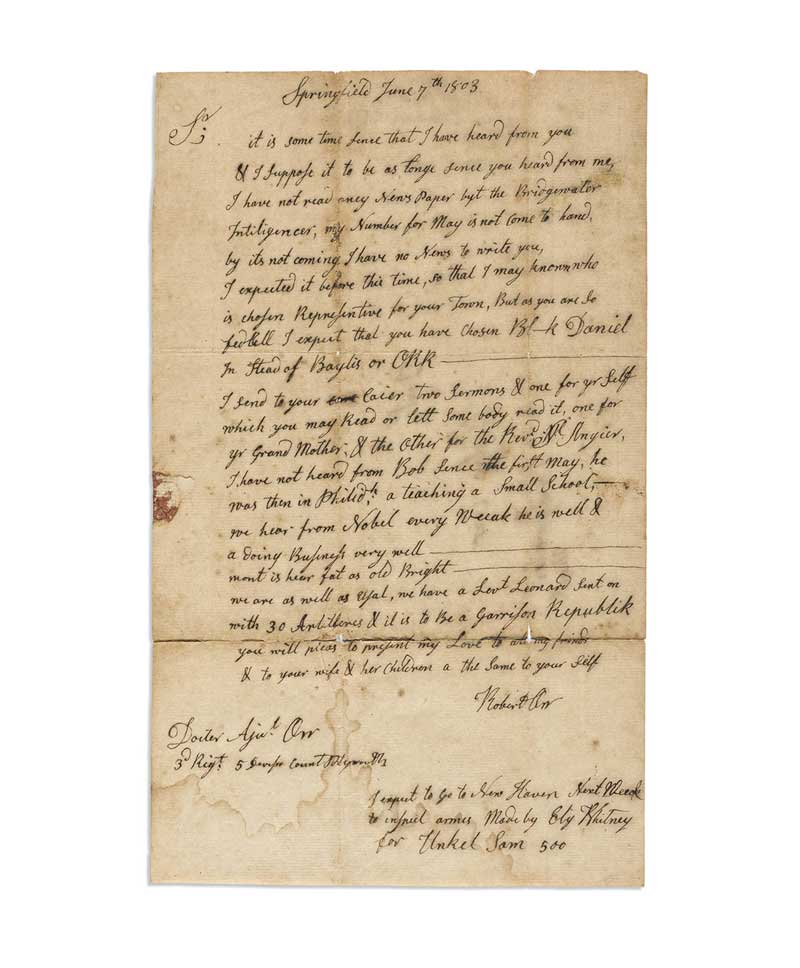 Springfield June 7th 1803
Sr;
it is some time sence that I have heard from you
& I suppose it to be as Longe since you heard from me,
I have not read aney News Paper byt the Bridgewator
Intiligencer, my Number for May is not come to hand,
by its not coming I have no News to write you,
I expected it before this time, so that I may known who
is chosen Representive for your Town, But as you are so
fedrell I expect that you have chosen Bl—k Daniel
In Stead of Baylis or ORR
I send to your Caier two Sermons & one for yr Self
which you may Read or lett Some body read it, one for
yr Grand Mother, & the Other for the Revd. Mr Angier,
I have not heard from Bob sence the first May, he
was then in Philidh, a teaching a Small School,
we hear from Nobel every Weeak he is well &
a doing Business very well
mont is hear fat as old Bright
we are as well as usal, we have a Levt Leonard sent on
with 30 Artilleres & it is to Be a Garrison Republik
you will pleas to present my Love to my frinds
& to your wife & her Children a the Same to your Self
Robert Orr
Docter Ajut. Orr
3d Rigt. 5 Count
I expect to Go to New Haven Next Weeak
to inspect armes Made by Ely Whitney
for Unkel Sam 500